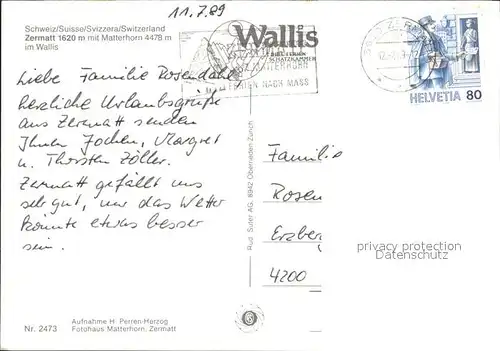 11.7.89
Schweiz/Suisse/Svizzera/Switzerland
Zermatt 1620 m mit Matterhorn 4478 m
im Wallis
Wallis
SCHATZKAMMER
MATTERHORN
FERIEN NACH MASS
ZERMATT
HELVETIA 80
Liebe Familie Rosendahl,
herzliche Urlaubsgrüße
aus Zermatt senden
Ihnen Jochen, Margret
u. Thorsten Zöller.
Zermatt gefällt uns
sehr gut, nur das Wetter
könnte etwas besser
sein.
Rud. Suter AG, 8942 Oberrieden Zürich
Familie
Rosen
Erzber
4200
privacy protection
(c) DATENSCHUTZ
Nr. 2473
Aufnahme H. Perren-Herzog
Fotohaus Matterhorn, Zermatt